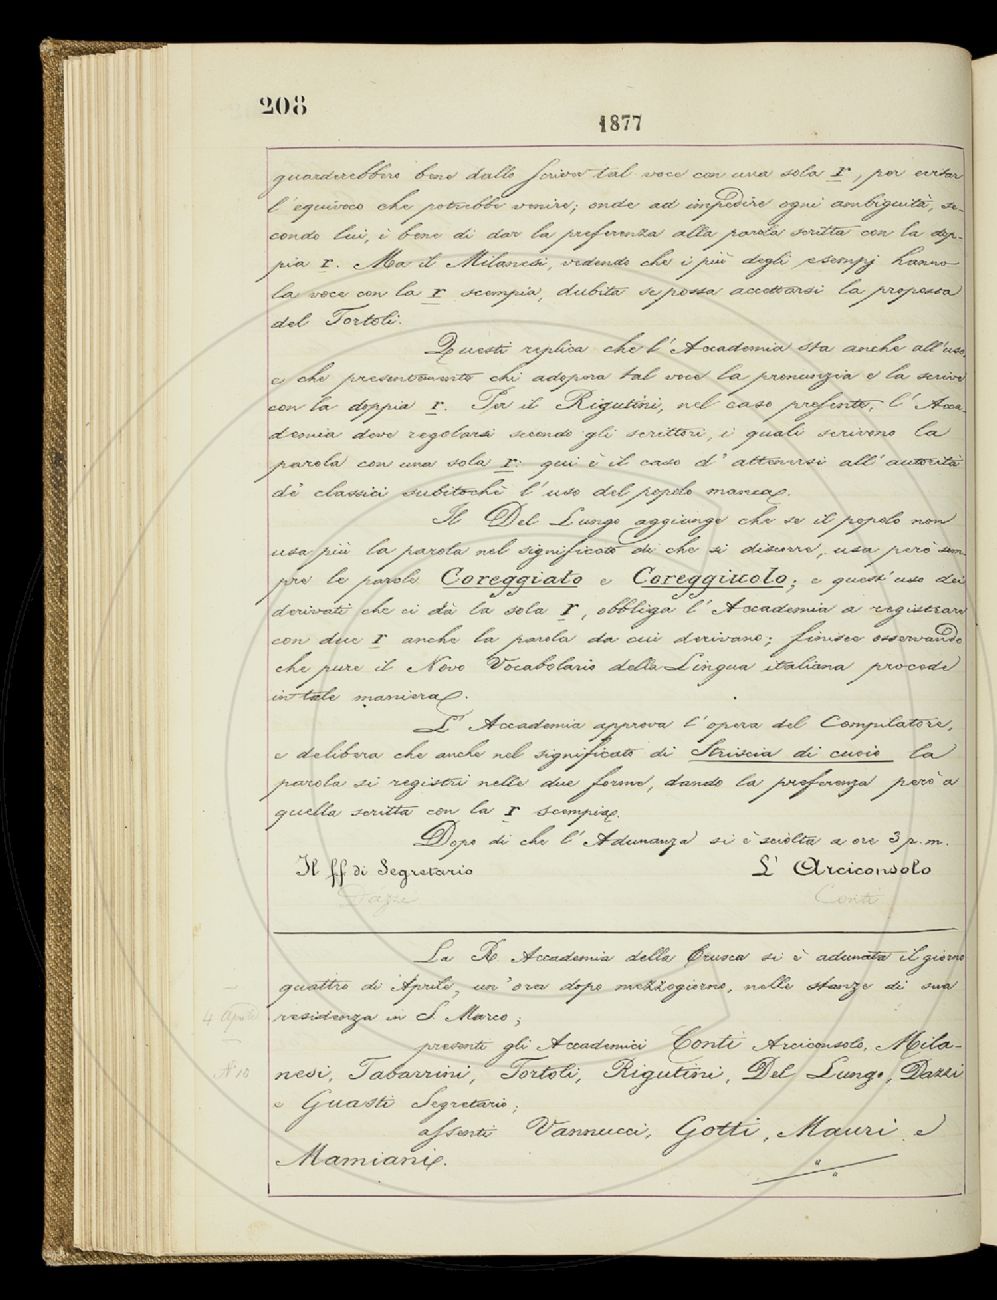 208
1877
guarderebbero bene dallo scriver tal voce con una sola r, per evitar
l'equivoco che potrebbe venire; onde ad impedire ogni ambiguità, se-
condo lui, è bene di dar la preferenza alla parola scritta con la dop-
pia r. Ma il Milanesi, vedendo che i più degli esempj hanno
la voce con la r scempia, dubita se possa accettarsi la proposta
del Tortoli.
Questi replica che l'Accademia sta anche all'uso,
e che presentemente chi adopera tal voce la pronunzia e la scrive
con la doppia r. Per il Rigutini, nel caso presente, l'Acca-
demia deve regolarsi secondo gli scrittori, i quali scrivono la
parola con una sola r: qui è il caso d'attenersi all'autorità
de' classici subitochè l'uso del popolo manca.
Il Del Lungo aggiunge che se il popolo non
usa più la parola nel significato di che si discorre, usa però sem-
pre le parole Coreggiato e Coreggiuolo; e quest'uso dei
derivati che ci dà la sola r, obbliga l'Accademia a registrare
con due r anche la parola da cui derivano; finisce osservando
che pure il Novo Vocabolario della Lingua italiana procede
in tale maniera.
L'Accademia approva l'opera del Compilatore,
e delibera che anche nel significato di Striscia di cuoio la
parola si registri nelle due forme, dando la preferenza però a
quella scritta con la r scempia.
Dopo di che l'Adunanza si è sciolta a ore 3 p.m.
Il ff di Segretario L'Arciconsolo
Dazzi Conti
La R. Accademia della Crusca si è adunata il giorno
quattro di Aprile, un'ora dopo mezzogiorno, nelle stanze di sua
4 Aprile residenza in S. Marco;
presenti gli Accademici Conti Arciconsolo, Mila-
N. 10 nesi, Tabarrini, Tortoli, Rigutini, Del Lungo, Dazzi
e Guasti Segretario;
assenti Vannucci, Gotti, Mauri e
Mamiani.